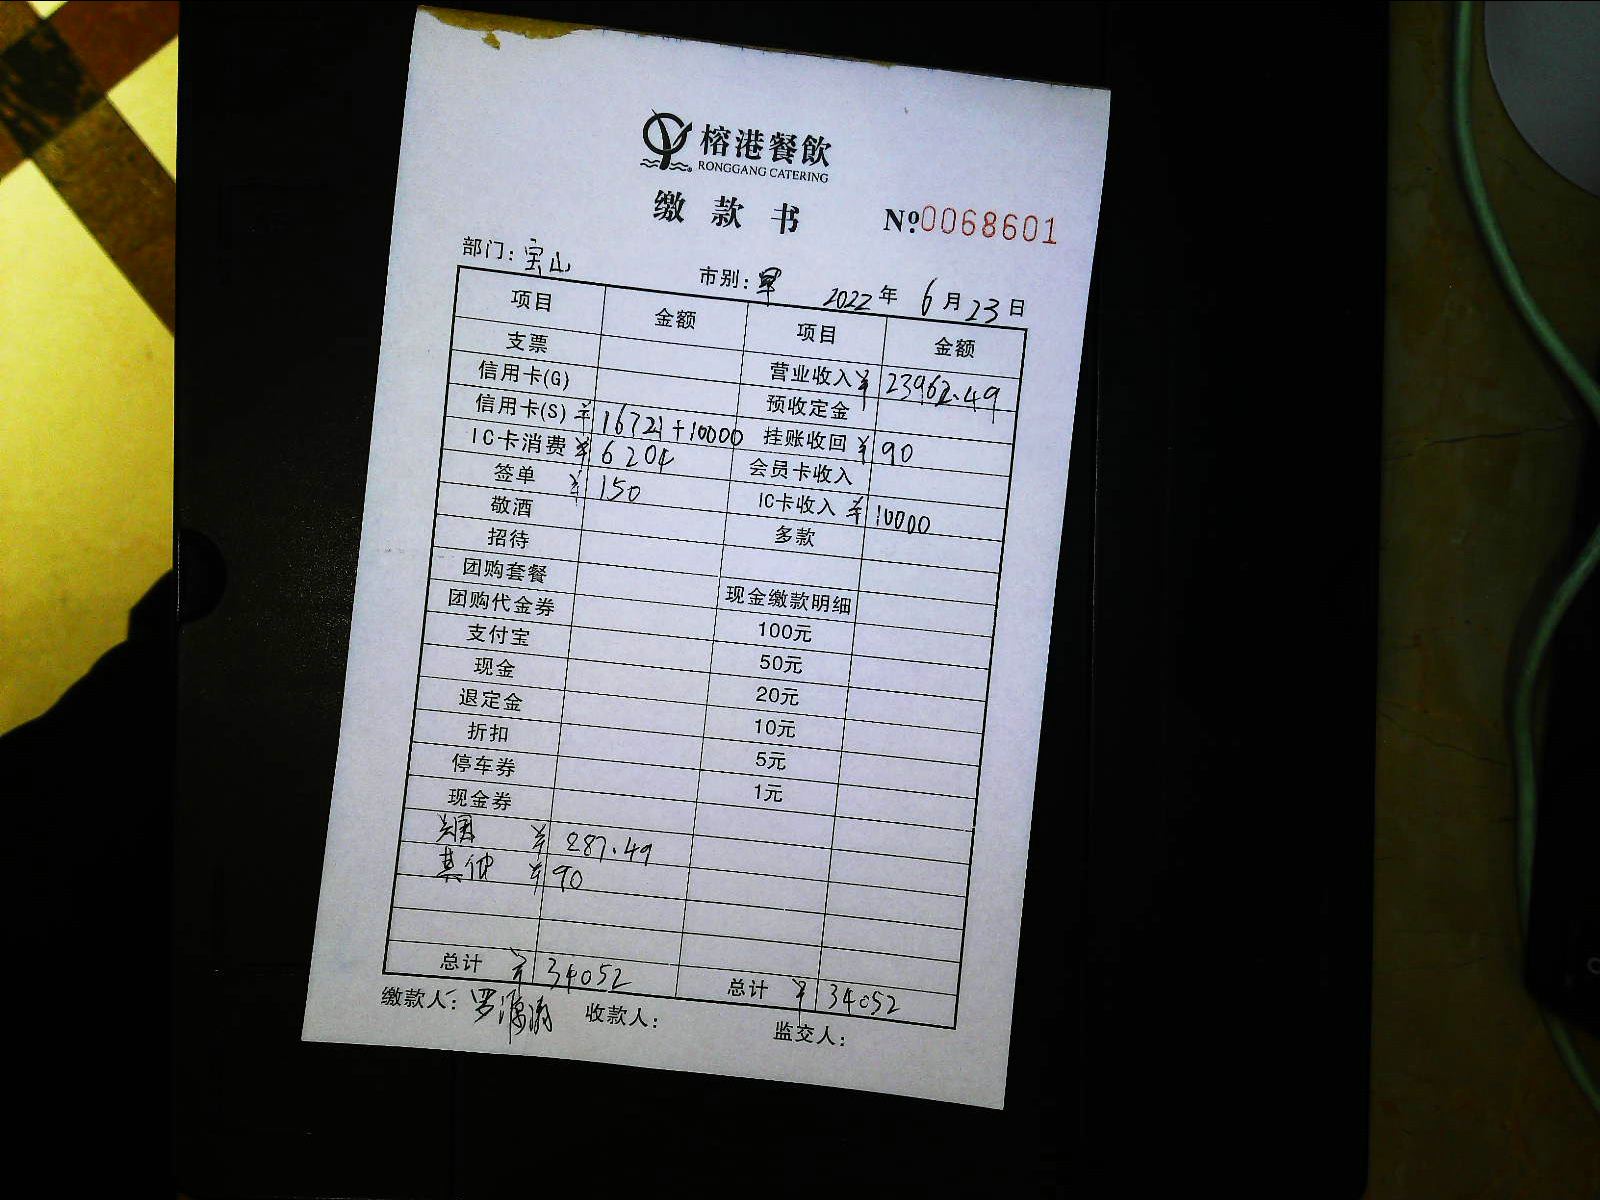 榕港餐飲
RONGGANG CATERING
缴款书 №:0068601
部门:宝山 市别:早 2022年6月23日
项目 金额 项目 金额
支票 营业收入 ¥23962.49
信用卡(G) 预收定金
信用卡(S) ¥16721+10000 挂账收回 ¥90
IC卡消费 ¥6204 会员卡收入
签单 ¥150 IC卡收入 ¥10000
敬酒 多款
招待
团购套餐 现金缴款明细
团购代金券 100元
支付宝 50元
现金 20元
退定金 10元
折扣 5元
停车券 1元
现金券
¥287.49
其他 ¥90
总计 ¥34052 总计 ¥34052
缴款人:罗 收款人: 监交人: